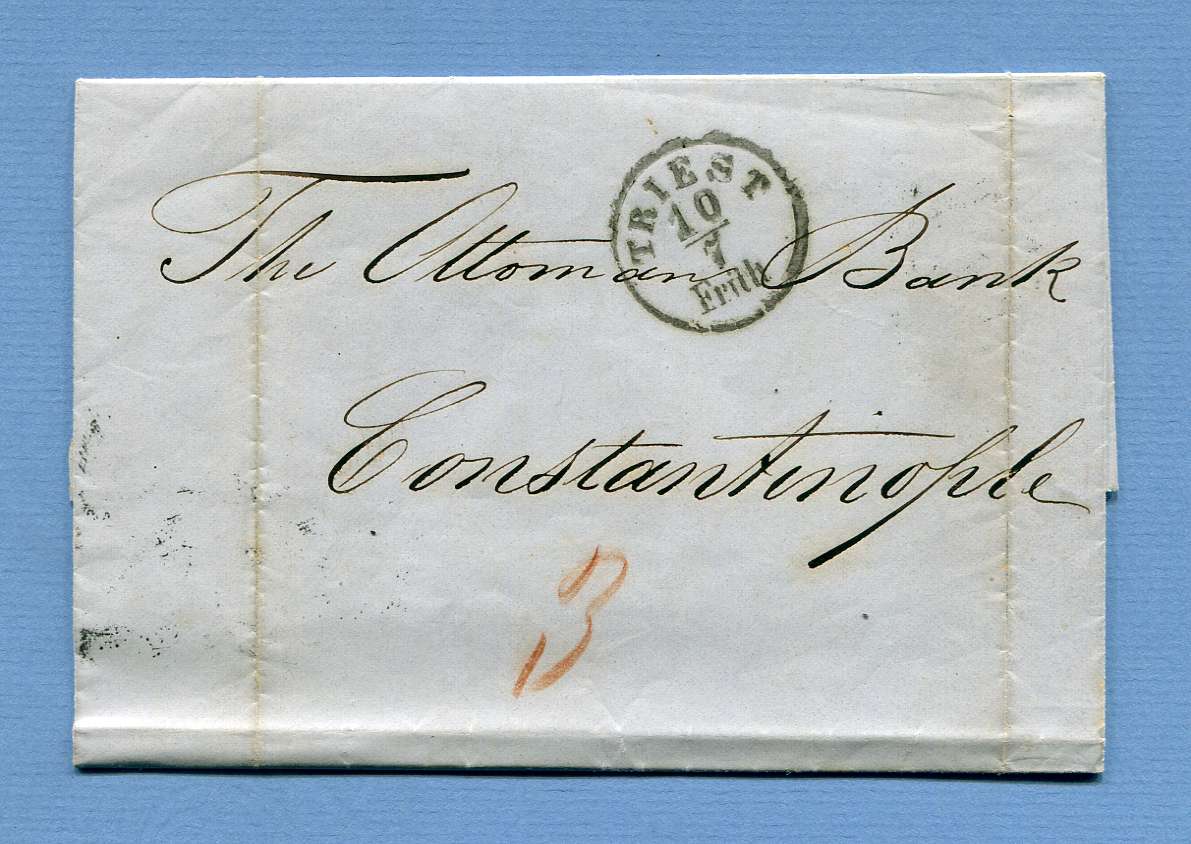 TRIEST
10
7
Früh
The Ottoman Bank
Constantinople
3